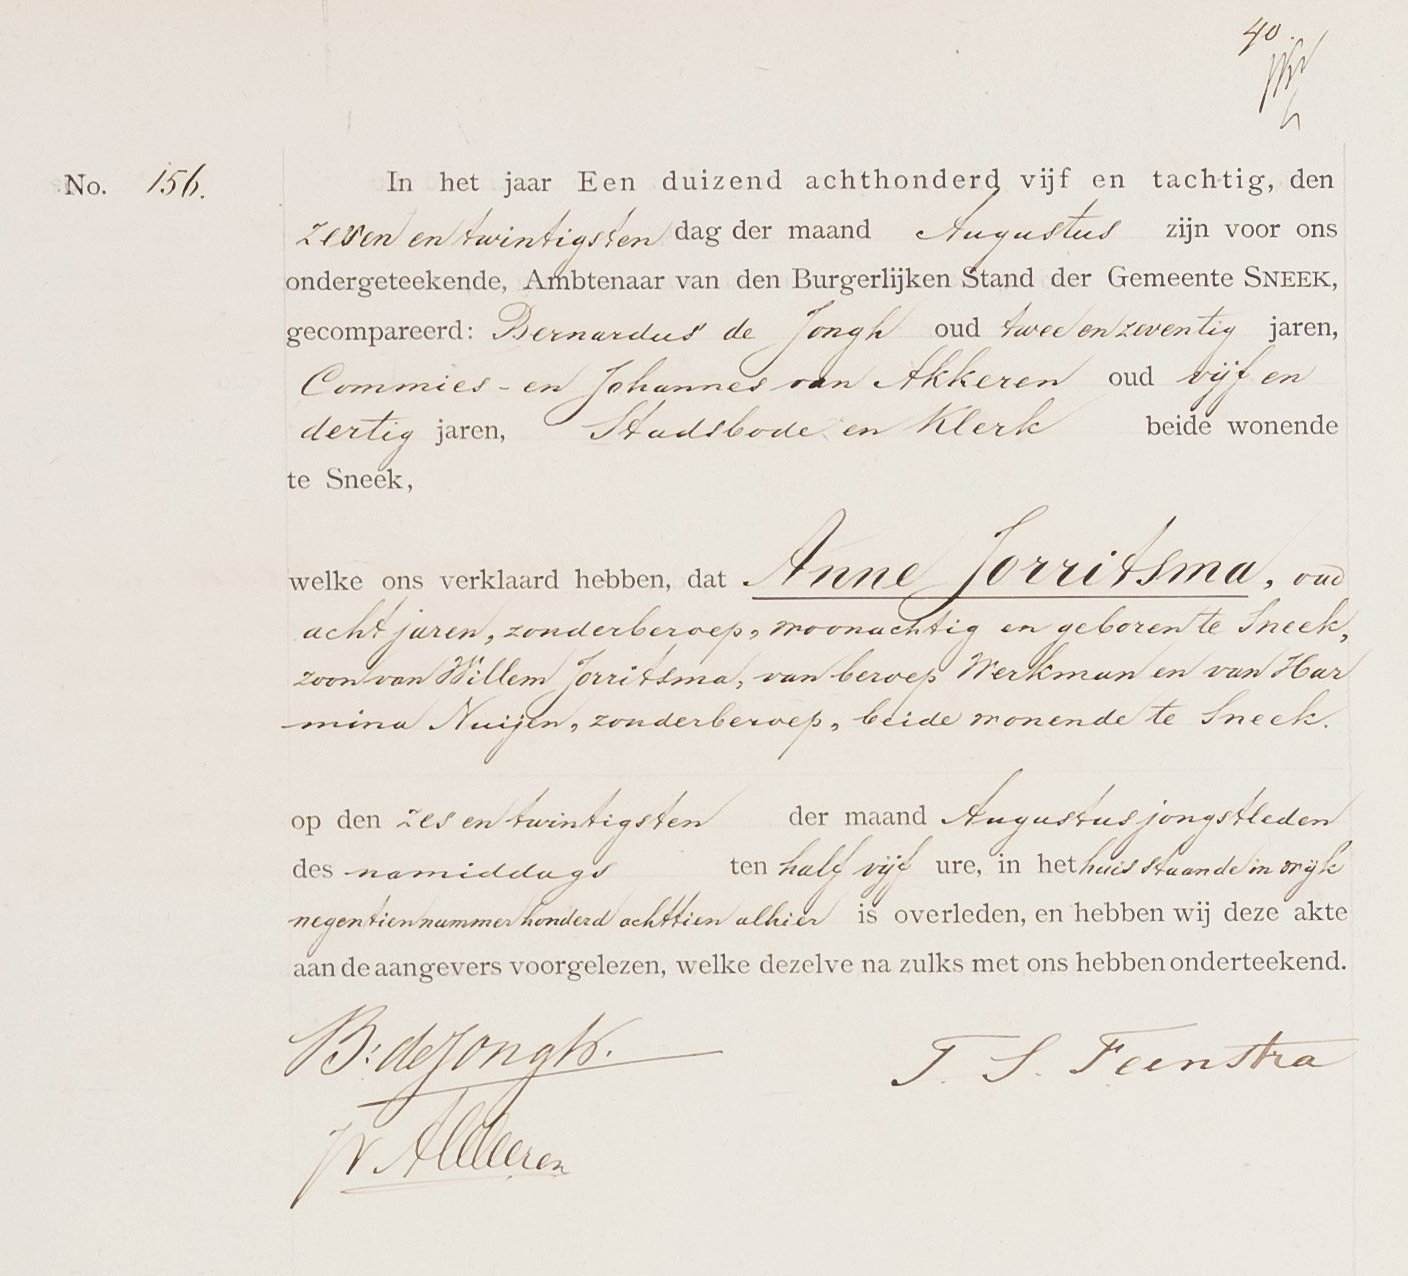 40.
No. 156. In het jaar Een duizend achthonderd vijf en tachtig, den
zeven en twintigsten dag der maand Augustus zijn voor ons
ondergeteekende, Ambtenaar van den Burgerlijken Stand der Gemeente SNEEK,
gecompareerd: Bernardus de Jongh oud twee en zeventig jaren,
Commies - en Johannes van Akkeren oud vijf en
dertig jaren, Stadsbode en Klerk beide wonende
te Sneek,
welke ons verklaard hebben, dat Anne Jorritsma, oud
acht jaren, zonder beroep, woonachtig en geboren te Sneek,
zoon van Willem Jorritsma, van beroep Werkman en van Har
mina Nuijen, zonder beroep, beide wonende te Sneek.
op den zes en twintigsten der maand Augustus jongstleden
des namiddags ten half vijf ure, in het huis staande in wijk
negentien nummer honderd achttien alhier is overleden, en hebben wij deze akte
aan de aangevers voorgelezen, welke dezelve na zulks met ons hebben onderteekend.
B: de Jongh.
T. S. Feenstra
JvAkkeren